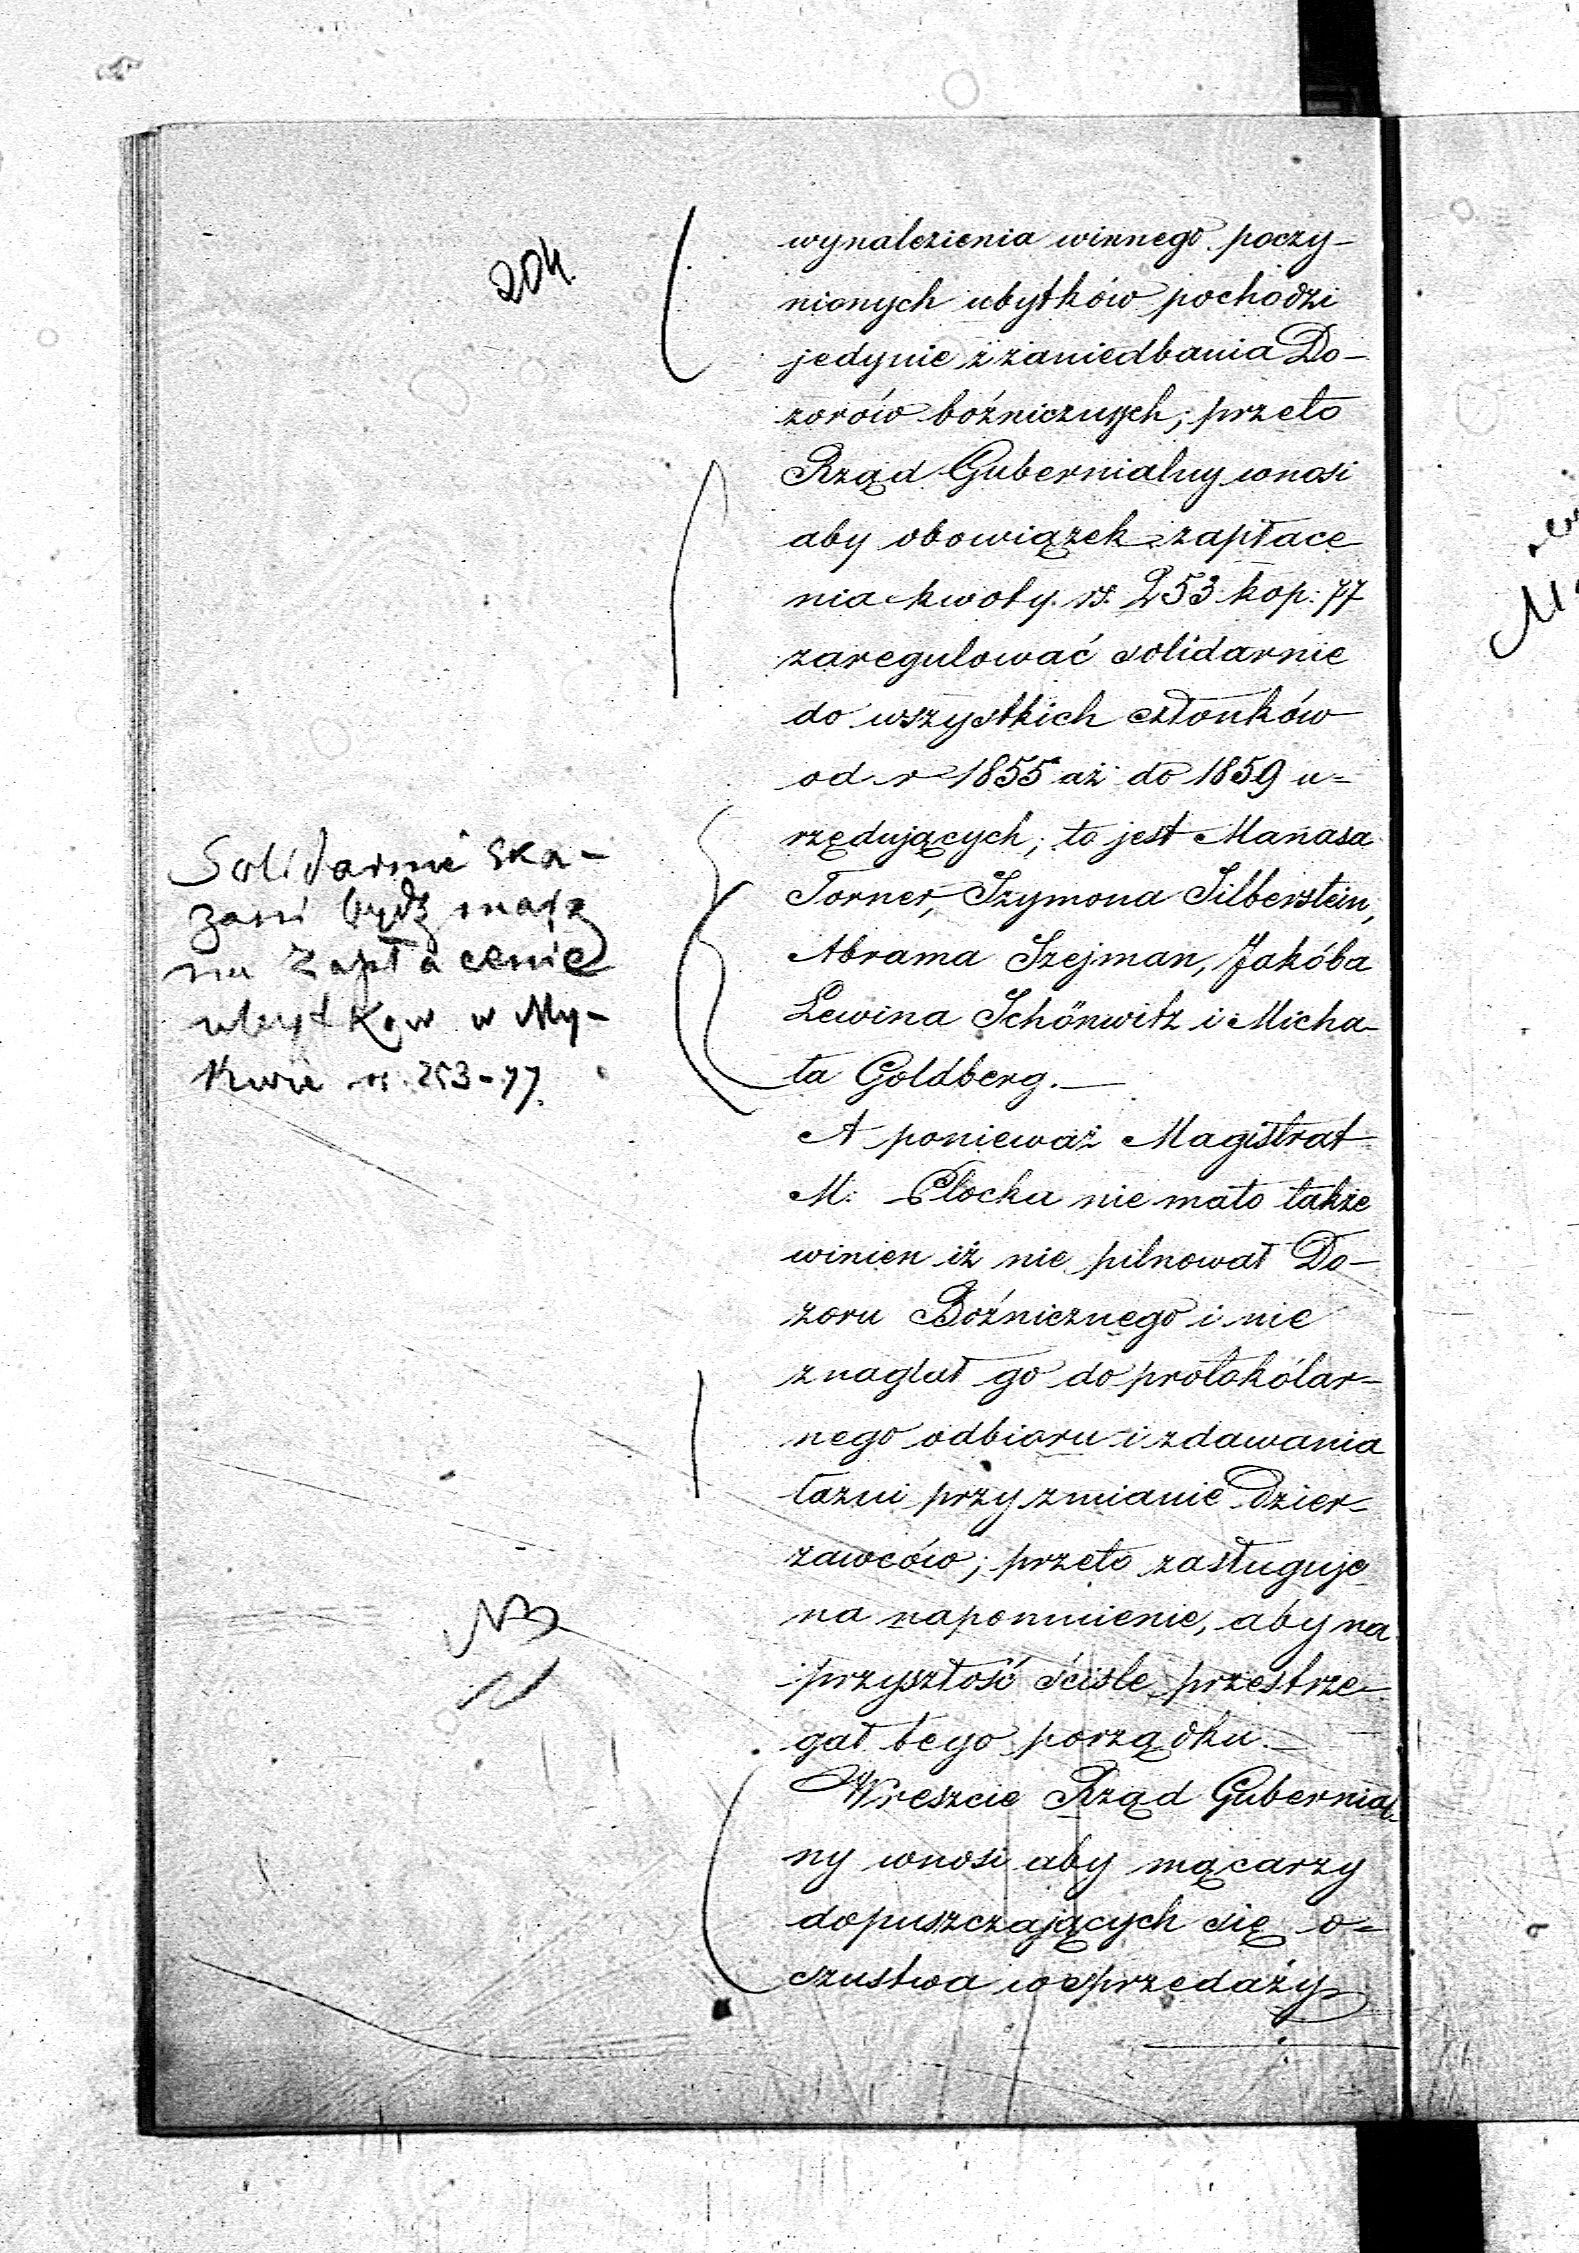 204.
wynalezienia winnego poczy-
nionych ubytków pochodzi
jedynie z zaniedbania Do-
zorów bóźniczych; przeto
Rząd Gubernialny wnosi
aby obowiązek zapłace
nia kwoty rs. 253 kop: 77
zaregulować solidarnie
do wszystkich członków
od r 1855 aż do 1859 u=
rzędujących; to jest Manasa
Torner, Szymona Silberstein,
Abrama Szejman, Jakóba
Lewina Schönwitz i Micha-
ła Goldberg.—
Solidarnie ska-
zani bydź mają
na zapłacenie
ubytków w My-
kwie rs. 253-77.
A ponieważ Magistrat
M: Płocka nie mało także
winien iż nie pilnował Do-
zoru Bóźnicznego i nie
znaglał go do protokólar-
nego odbioru i zdawania
łazni przy zmianie dzier-
zawców; przeto zasługuje
na napomnienie, aby na
przyszłość ściśle przestrze-
gał tego porządku.—
NB
Wreszcie Rząd Gubernial-
ny wnosi aby mącarzy
dopuszczających się o=
szustwa w sprzedaży